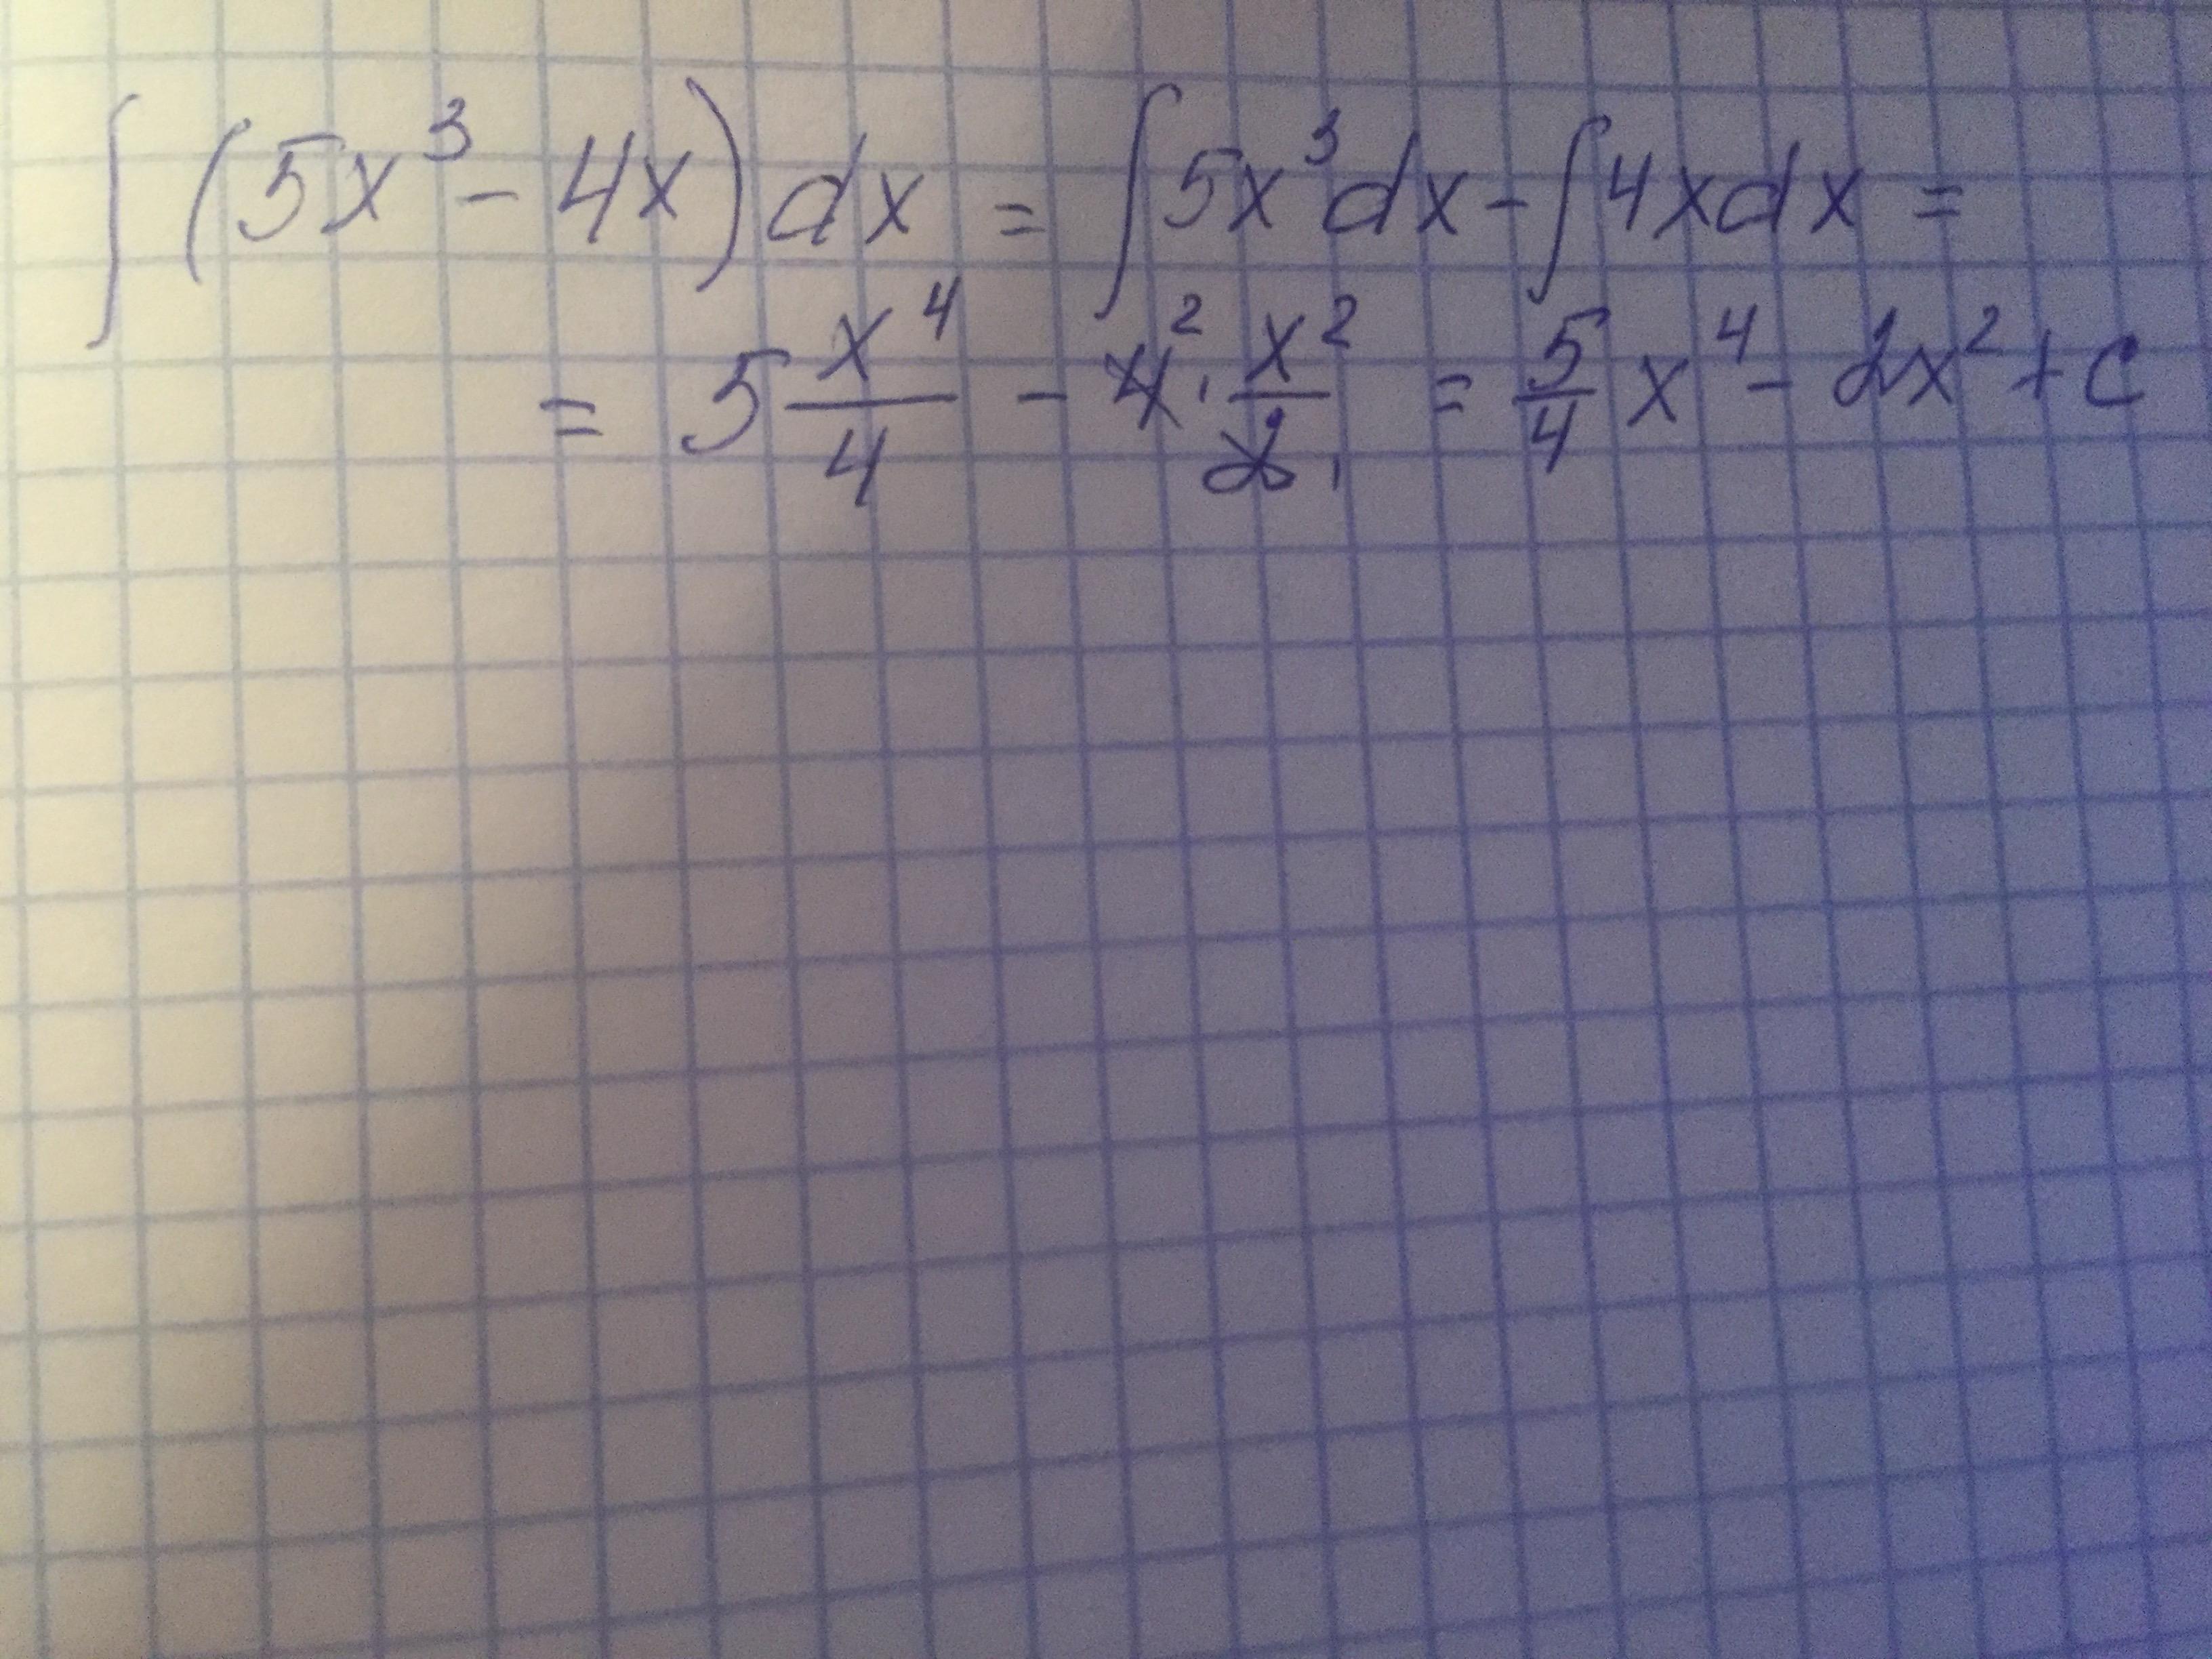 ∫(5x³ - 4x)dx = ∫5x³dx - ∫4xdx =
= 5 x⁴/4 - 4² · x²/2₁ = 5/4 x⁴ - 2x² + C